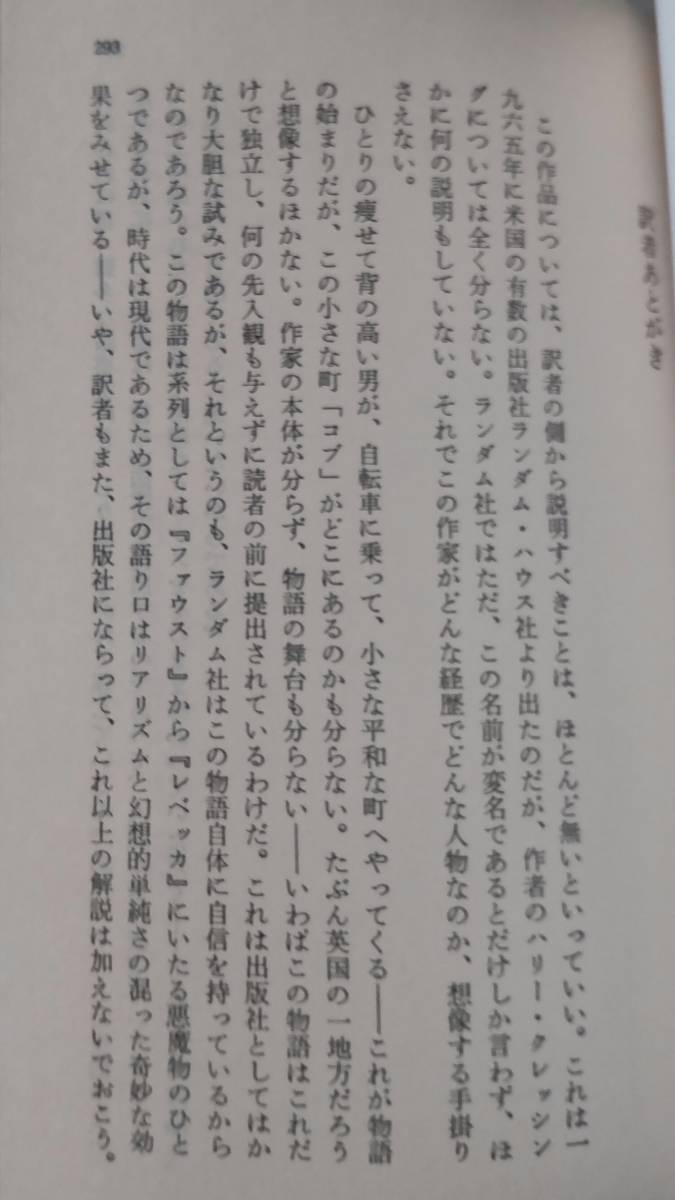 訳者あとがき
この作品については、訳者の側から説明すべきことは、ほとんど無いといっていい。これは一
九六五年に米国の有数の出版社ランダム・ハウス社より出たのだが、作者のハリー・クレッシン
グについては全く分らない。ランダム社ではただ、この名前が変名であるとだけしか言わず、ほ
かに何の説明もしていない。それでこの作家がどんな経歴でどんな人物なのか、想像する手掛り
さえない。
ひとりの痩せて背の高い男が、自転車に乗って、小さな平和な町へやってくる――これが物語
の始まりだが、この小さな町「コブ」がどこにあるのかも分らない。たぶん英国の一地方だろう
と想像するほかない。作家の本体が分らず、物語の舞台も分らない――いわばこの物語はこれだ
けで独立し、何の先入観も与えずに読者の前に提出されているわけだ。これは出版社としてはか
なり大胆な試みであるが、それというのも、ランダム社はこの物語自体に自信を持っているから
なのであろう。この物語は系列としては『ファウスト』から『レベッカ』にいたる悪魔物のひと
つであるが、時代は現代であるため、その語り口はリアリズムと幻想的単純さの混った奇妙な効
果をみせている――いや、訳者もまた、出版社にならって、これ以上の解説は加えないでおこう。
293